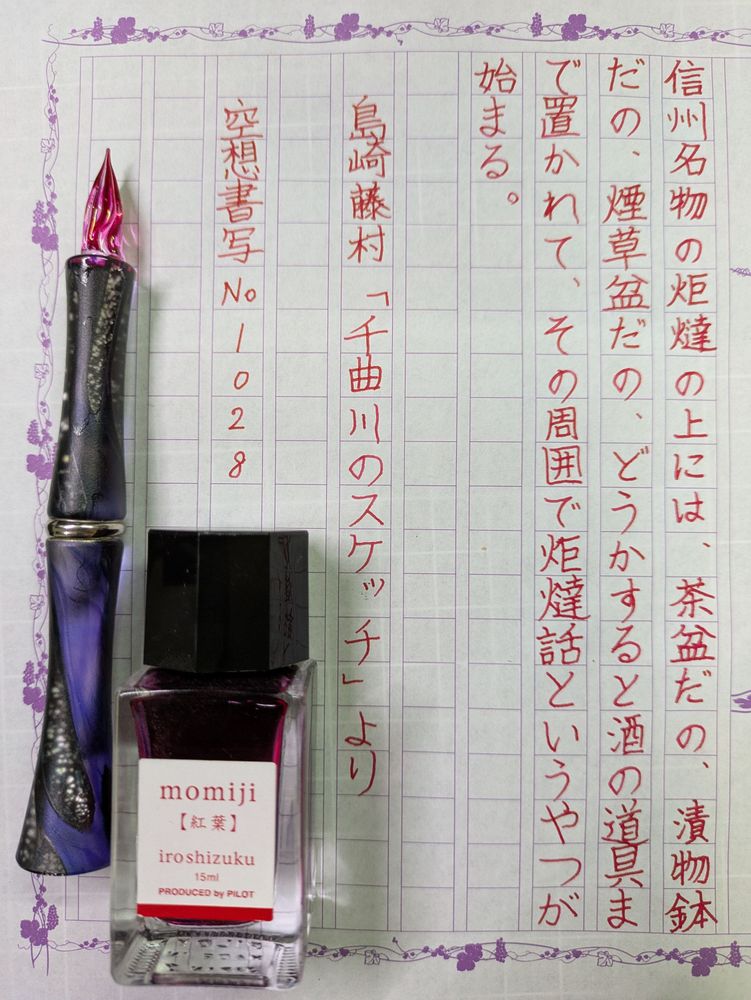 信州名物の炬燵の上には、茶盆だの、漬物鉢
だの、煙草盆だの、どうかすると酒の道具ま
で置かれて、その周囲で炬燵話というやつが
始まる。
島崎藤村「千曲川のスケッチ」より
空想書写No1028
momiji
【紅葉】
iroshizuku
15ml
PRODUCED by PILOT